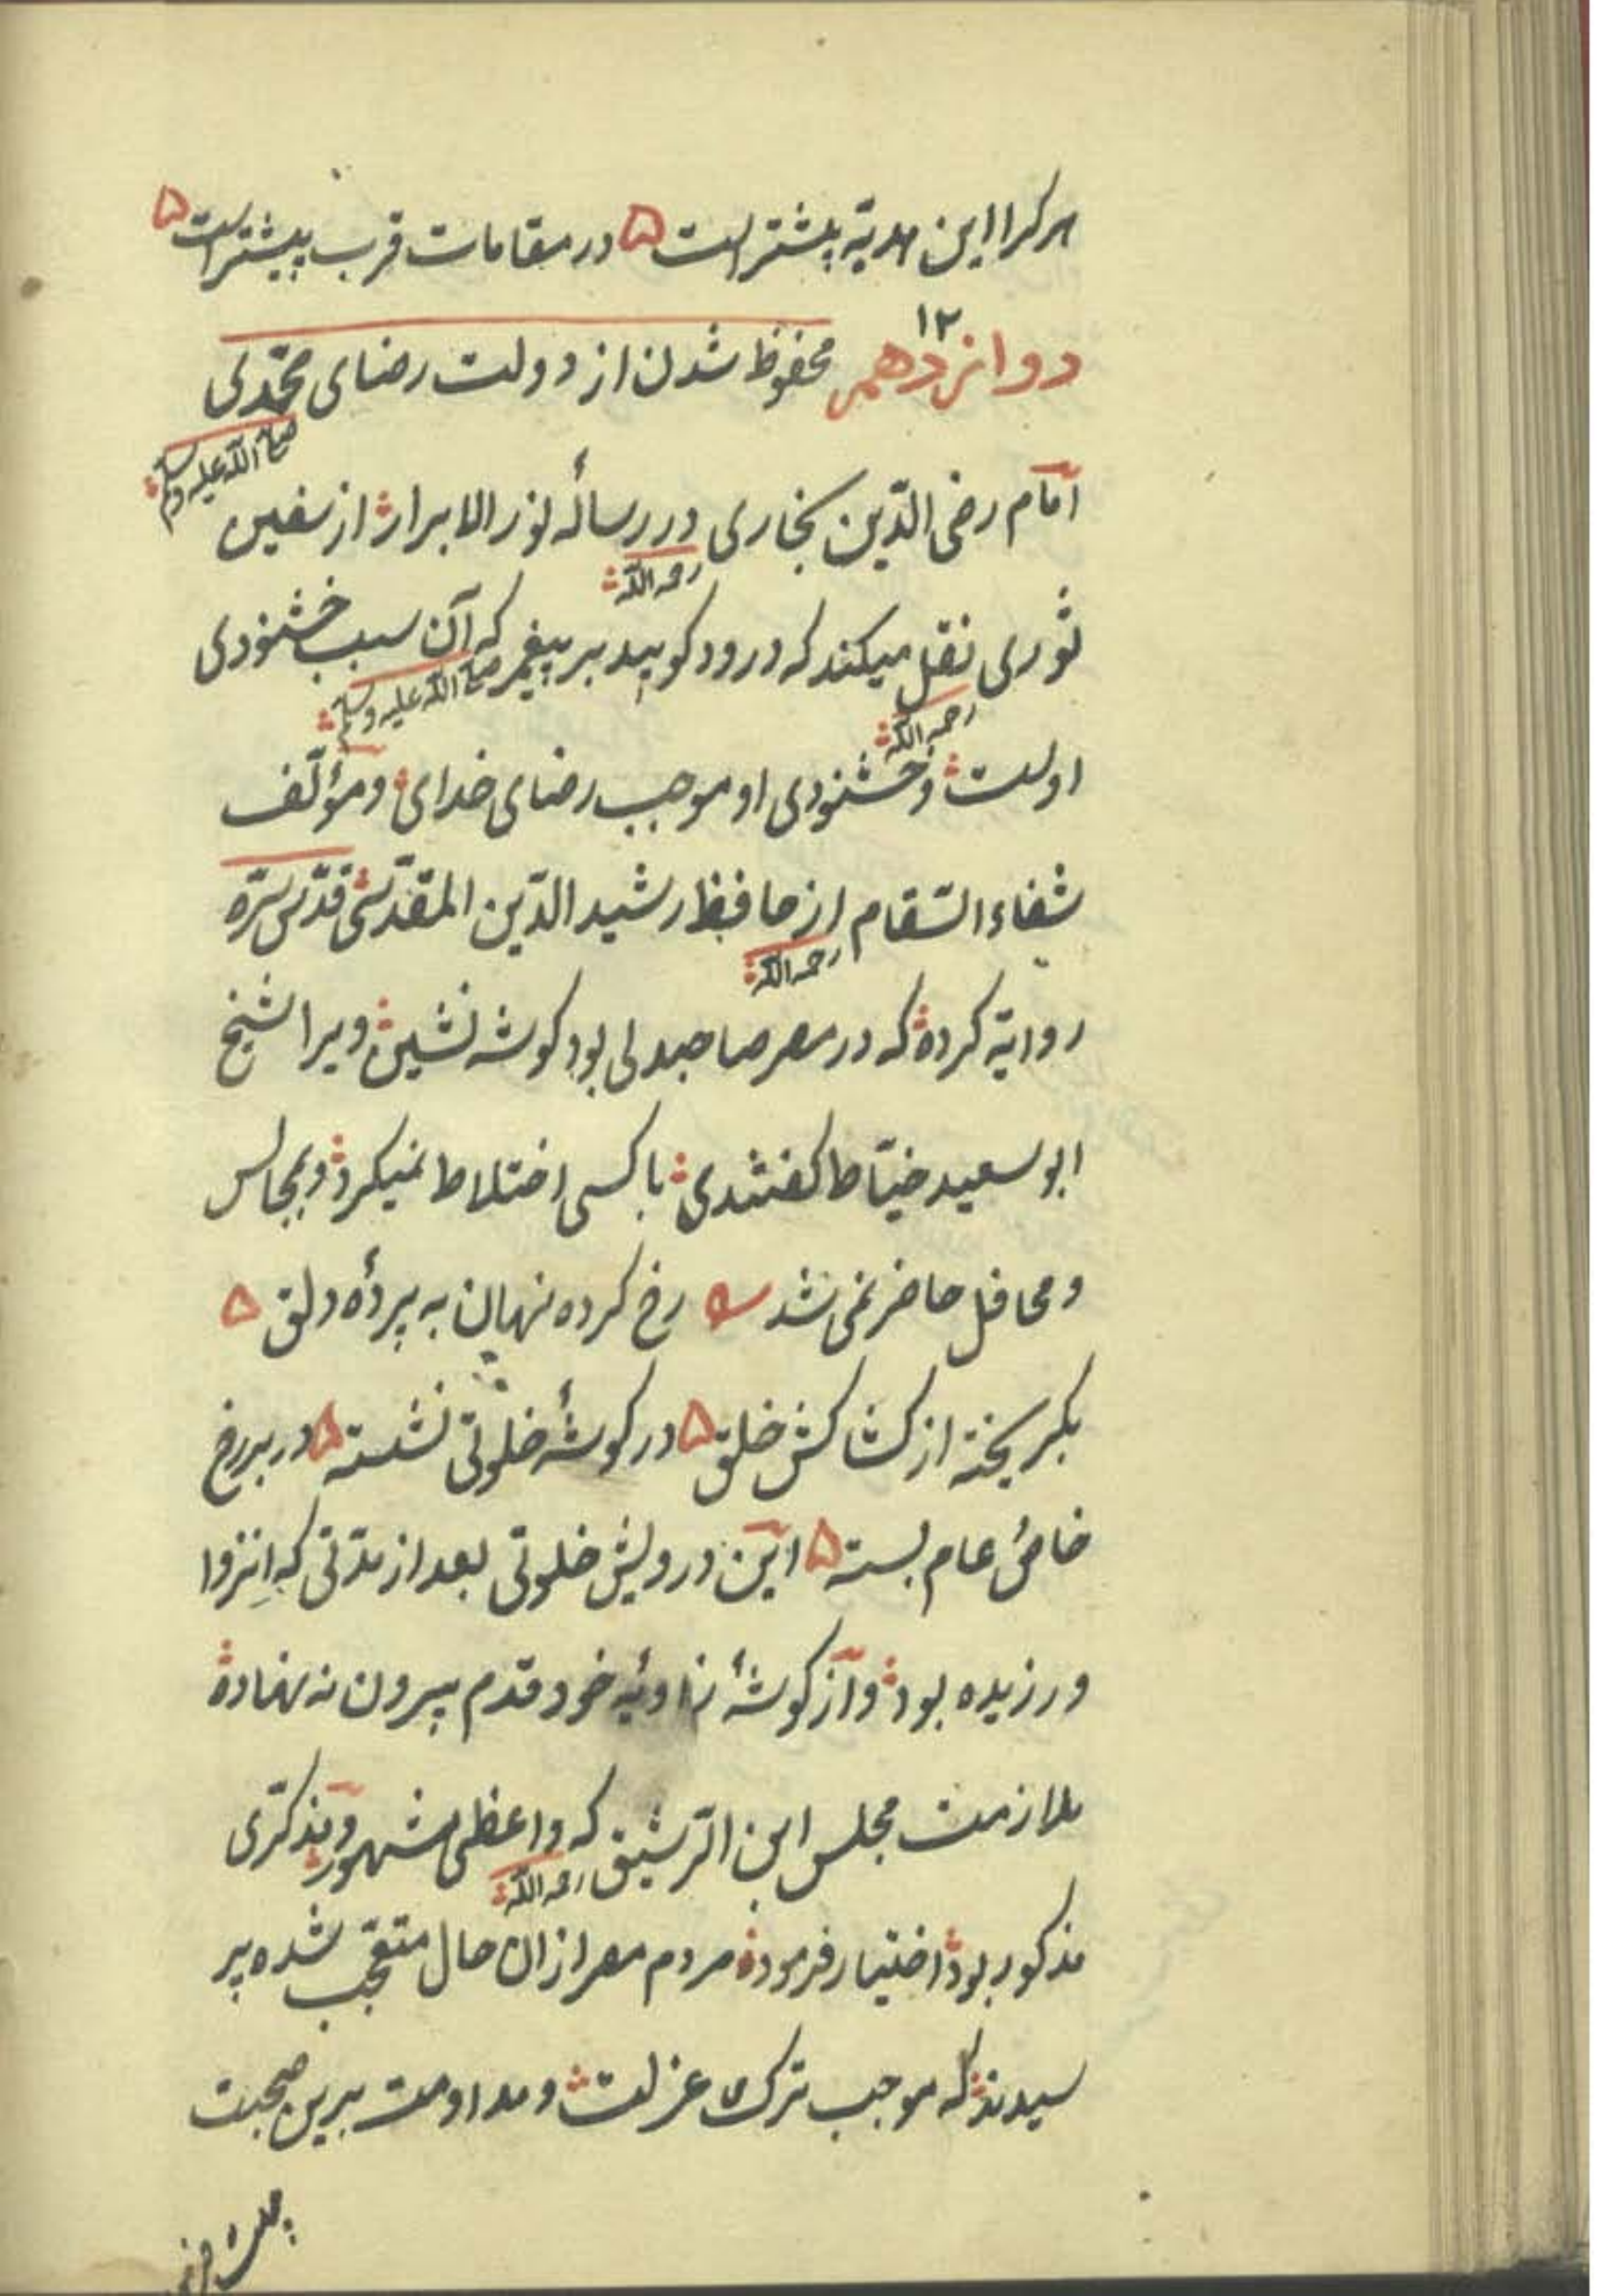 هرکرا این هدیّه بیشتر است ۵ در مقامات قرب پیشتر است ۵
۱۲
دوانزدهم محفوظ شدن از دولت رضای محمّدی
صلی الله علیه وسلم
امام رضی الدّین بخاری در رسالهٔ نور الابرار از سفین
رحمه الله
ثوری نقل میکند که درود کویید بر پیغمبر که آن سبب خشنودی
صلی الله علیه وسلم
رحمه الله
اوست و خشنودی او موجب رضای خدای و مؤلّف
شفاء السّقام از حافظ رشید الدّین المقدّسی قدّس سرّه
رحمه الله
روایة کرده که در مصر صاحبدلی بود کوشه نشین ویرا شیخ
ابو سعید خیّاط کفتندی با کسی اختلاط نمیکرد و بمجالس
و محافل حاضر نمی شد رخ کرده نهان به پردهٔ دلق ۵
بکریخته از کشاکش خلق ۵ در کوشهٔ خلوتی نشسته ۵ در بر رخ
خاص عام بسته ۵ این درویش خلوتی بعد از مدّتی که اِنزوا
ورزیده بود و از کوشهٔ زاویهٔ خود قدم بیرون نه نهاده
ملازمت مجلس ابن الرّشیق که واعظی مشهور و مذکّری
رحمه الله
مذکور بود اختیار فرموده مردم مصر ازان حال متعجّب شده پر
سیدند که موجب ترک عزلت و مداومت برین صحبت